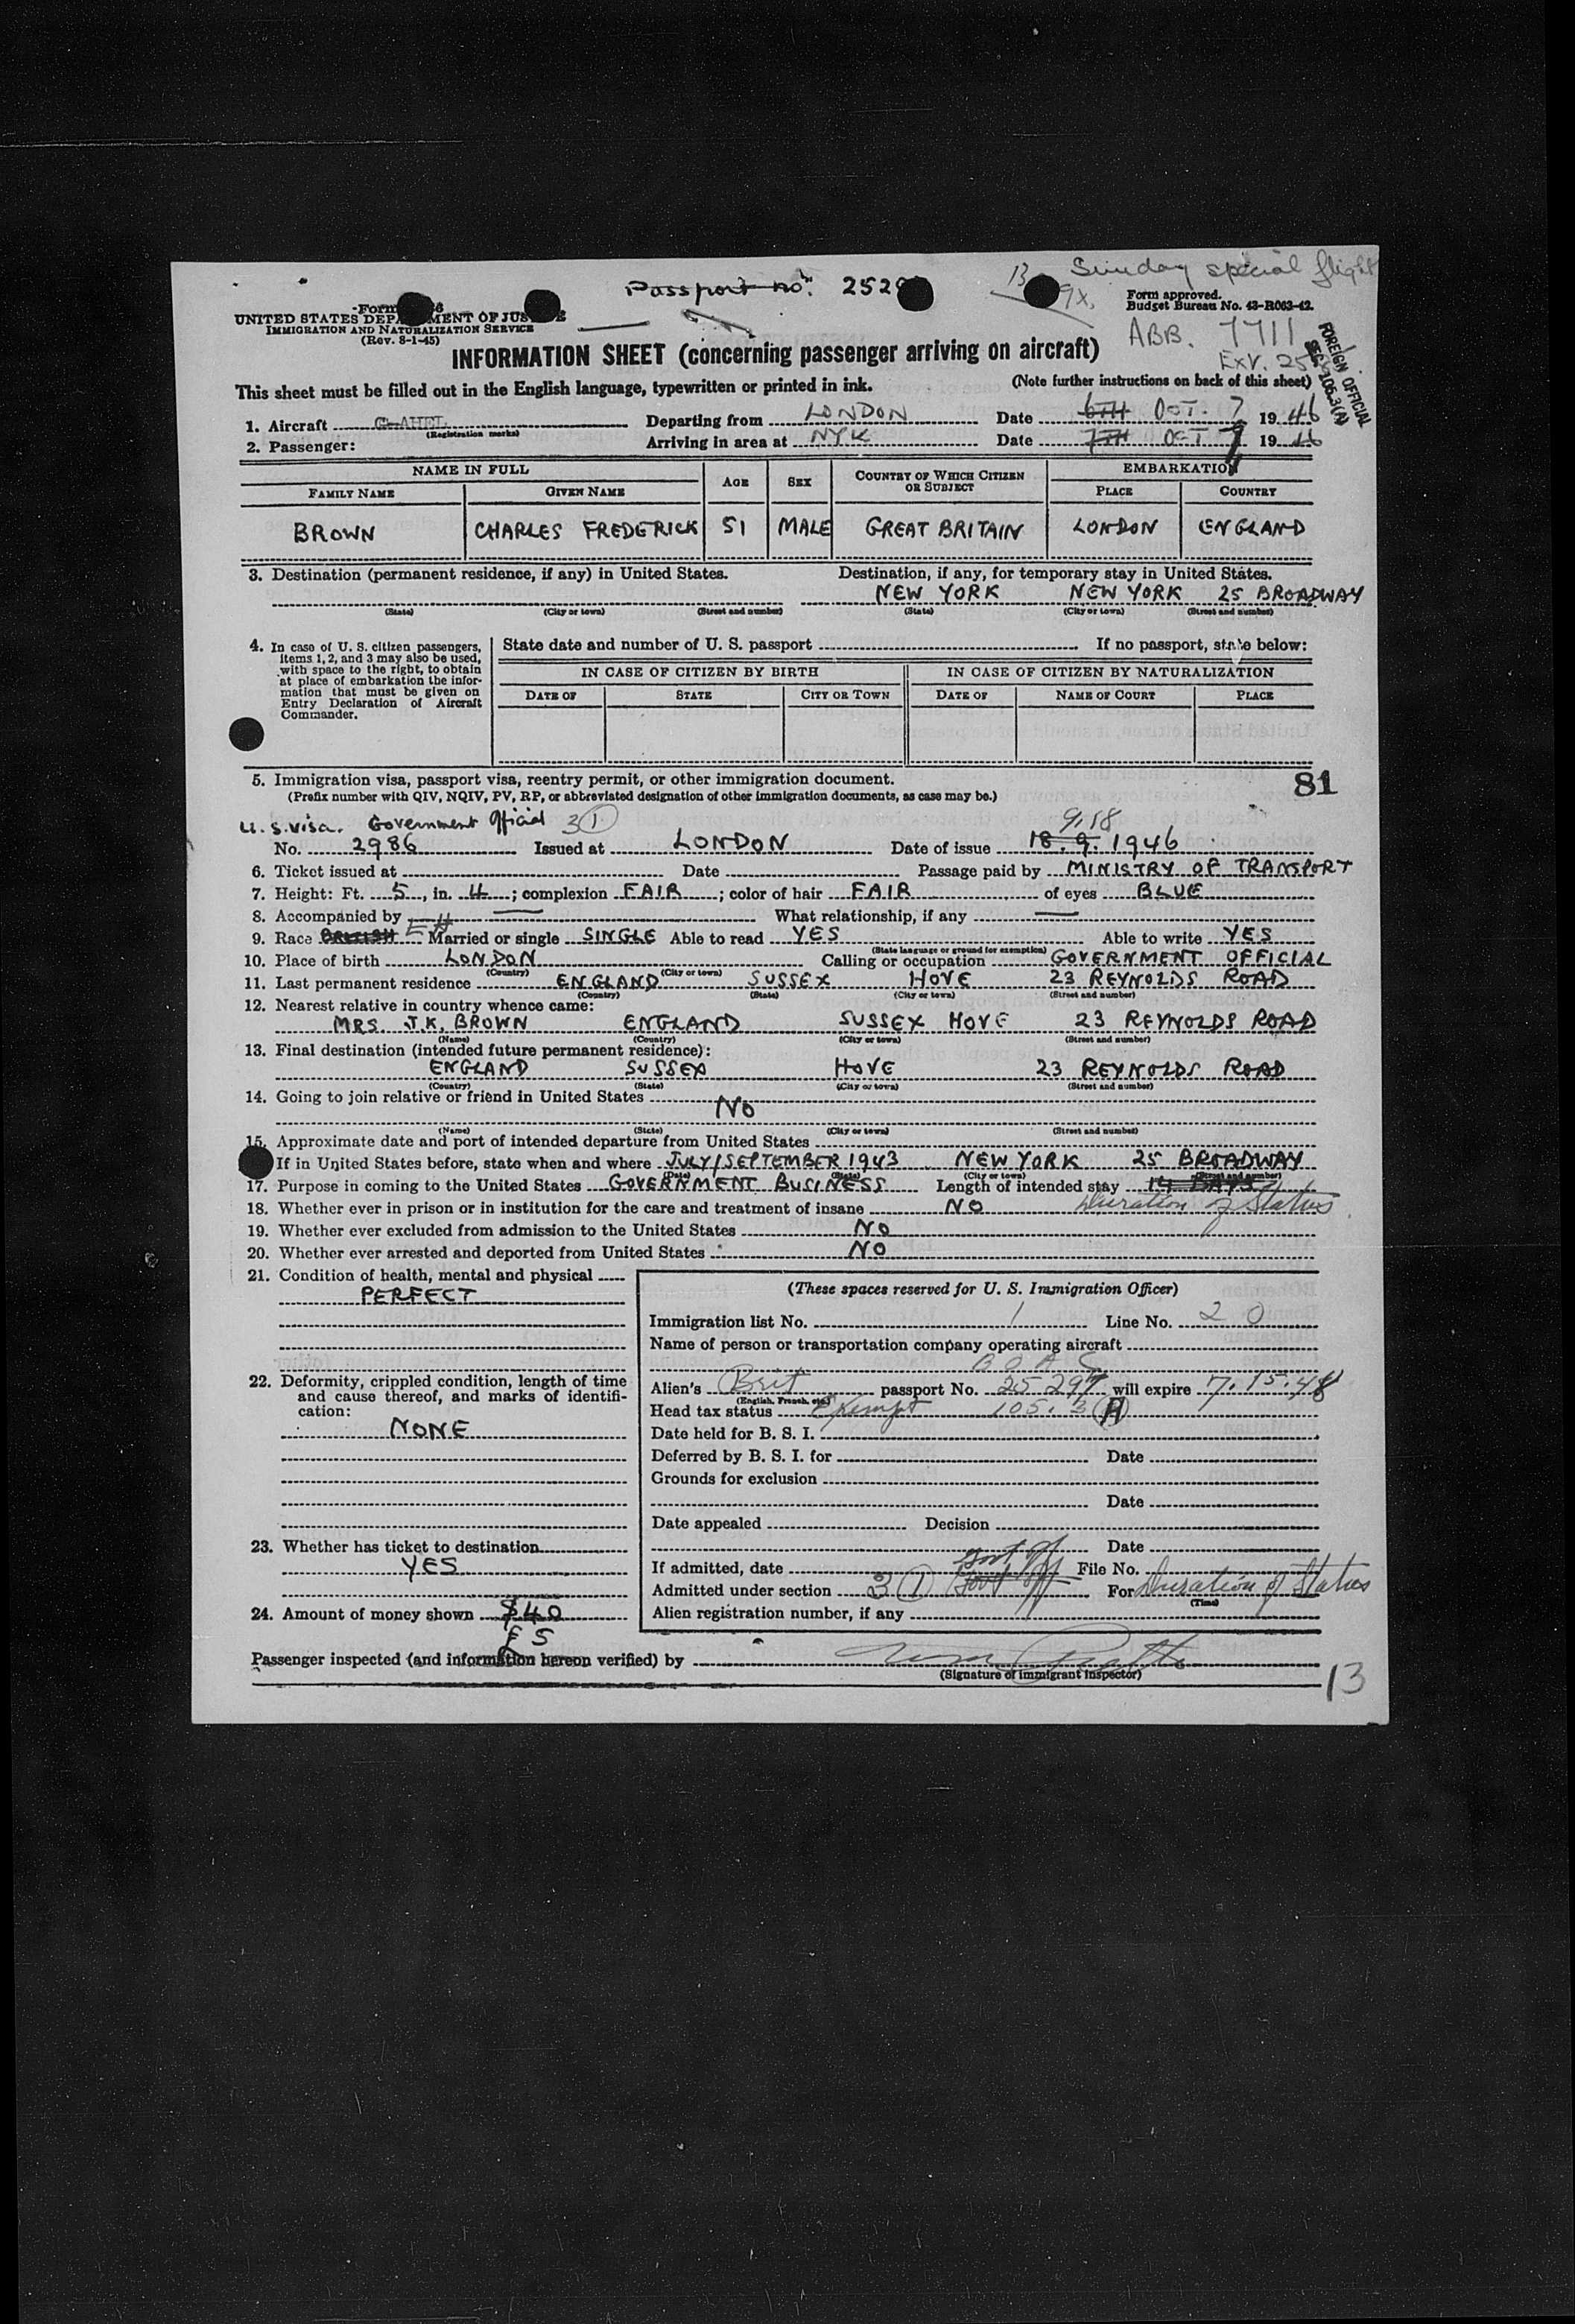 Passport no. 2529
13 Sunday special flight
9x.
Form
UNITED STATES DEPARTMENT OF JUSTICE
IMMIGRATION AND NATURALIZATION SERVICE
(Rev. 8-1-45)
Form approved.
Budget Bureau No. 43-R063-42.
ABB. 7711
FOREIGN OFFICIAL
SEC. 105.3(A)
INFORMATION SHEET (concerning passenger arriving on aircraft)
This sheet must be filled out in the English language, typewritten or printed in ink. (Note further instructions on back of this sheet)
1. Aircraft G-AHEL Departing from LONDON Date 6TH OCT. 7 1946
(Registration marks)
2. Passenger: Arriving in area at NYK Date 7TH OCT 7 1946
NAME IN FULL AGE SEX COUNTRY OF WHICH CITIZEN OR SUBJECT EMBARKATION
FAMILY NAME GIVEN NAME PLACE COUNTRY
BROWN CHARLES FREDERICK 51 MALE GREAT BRITAIN LONDON ENGLAND
3. Destination (permanent residence, if any) in United States. Destination, if any, for temporary stay in United States.
NEW YORK NEW YORK 25 BROADWAY
(State) (City or town) (Street and number) (State) (City or town) (Street and number)
4. In case of U. S. citizen passengers, items 1, 2, and 3 may also be used, with space to the right, to obtain at place of embarkation the information that must be given on Entry Declaration of Aircraft Commander.
State date and number of U. S. passport If no passport, state below:
IN CASE OF CITIZEN BY BIRTH IN CASE OF CITIZEN BY NATURALIZATION
DATE OF STATE CITY OR TOWN DATE OF NAME OF COURT PLACE
5. Immigration visa, passport visa, reentry permit, or other immigration document. 81
(Prefix number with QIV, NQIV, PV, RP, or abbreviated designation of other immigration documents, as case may be.)
U.S. visa. Government Official 3(1) 9.18
No. 2986 Issued at LONDON Date of issue 18.9.1946
6. Ticket issued at Date Passage paid by MINISTRY OF TRANSPORT
7. Height: Ft. 5, in. 4; complexion FAIR; color of hair FAIR of eyes BLUE
8. Accompanied by — What relationship, if any —
9. Race BRITISH EH Married or single SINGLE Able to read YES Able to write YES
(State language or ground for exemption)
10. Place of birth LONDON Calling or occupation GOVERNMENT OFFICIAL
(Country) (City or town)
11. Last permanent residence ENGLAND SUSSEX HOVE 23 REYNOLDS ROAD
(Country) (State) (City or town) (Street and number)
12. Nearest relative in country whence came:
MRS. J.K. BROWN ENGLAND SUSSEX HOVE 23 REYNOLDS ROAD
(Name) (Country) (City or town) (Street and number)
13. Final destination (intended future permanent residence):
ENGLAND SUSSEX HOVE 23 REYNOLDS ROAD
(Country) (State) (City or town) (Street and number)
14. Going to join relative or friend in United States
NO
(Name) (State) (City or town) (Street and number)
15. Approximate date and port of intended departure from United States
If in United States before, state when and where JULY/SEPTEMBER 1943 NEW YORK 25 BROADWAY
(Date) (State) (City or town) (Street and number)
17. Purpose in coming to the United States GOVERNMENT BUSINESS Length of intended stay 14 DAYS
18. Whether ever in prison or in institution for the care and treatment of insane NO Duration of Status
19. Whether ever excluded from admission to the United States NO
20. Whether ever arrested and deported from United States NO
21. Condition of health, mental and physical
PERFECT
22. Deformity, crippled condition, length of time and cause thereof, and marks of identification:
NONE
23. Whether has ticket to destination
YES
24. Amount of money shown $40
£5
(These spaces reserved for U. S. Immigration Officer)
Immigration list No. 1 Line No. 20
Name of person or transportation company operating aircraft
BOAC
Alien's Brit passport No. 25297 will expire 7.15.48
(English, French, etc.)
Head tax status Exempt 105.3(A)
Date held for B. S. I.
Deferred by B. S. I. for Date
Grounds for exclusion
Date
Date appealed Decision
Date
If admitted, date Govt Off File No.
Admitted under section 3(1) Govt Off For Duration of Status
(Time)
Alien registration number, if any
Passenger inspected (and information hereon verified) by
(Signature of immigrant inspector)
13